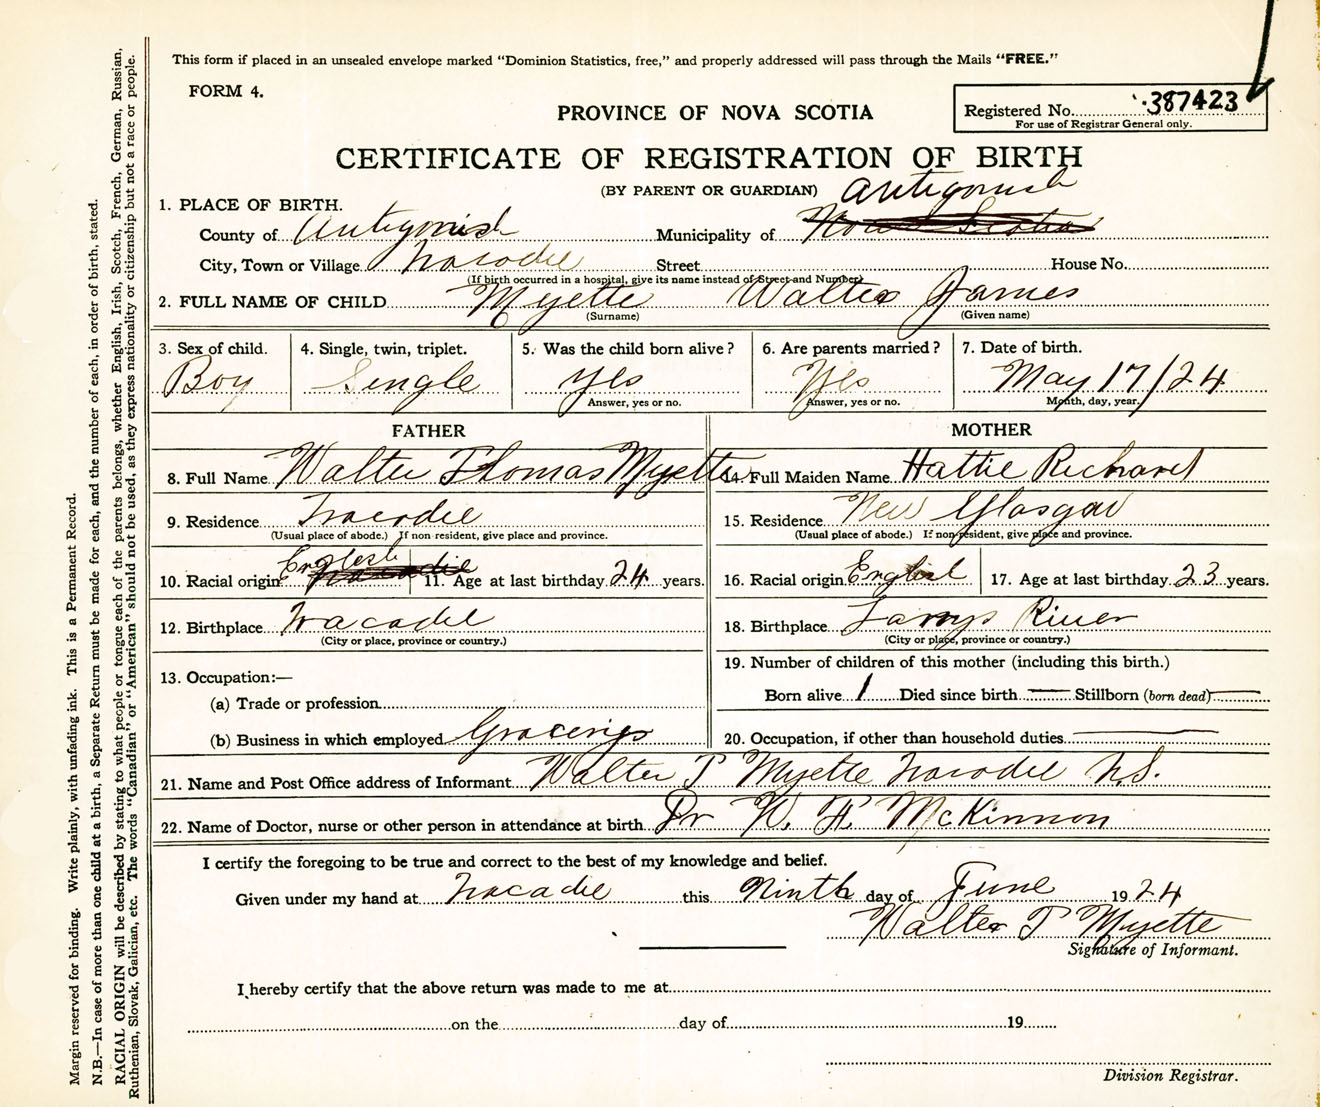 This form if placed in an unsealed envelope marked “Dominion Statistics, free,” and properly addressed will pass through the Mails “FREE.”
FORM 4.
Registered No. 387423
For use of Registrar General only.
PROVINCE OF NOVA SCOTIA
CERTIFICATE OF REGISTRATION OF BIRTH
(BY PARENT OR GUARDIAN)
1. PLACE OF BIRTH.
Antigonish
County of Antigonish Municipality of Nova Scotia
City, Town or Village Tracadie Street House No.
(If birth occurred in a hospital, give its name instead of Street and Number)
2. FULL NAME OF CHILD Myette Walter James
(Surname) (Given name)
3. Sex of child. 4. Single, twin, triplet. 5. Was the child born alive? 6. Are parents married? 7. Date of birth.
Boy Single Yes Yes May 17/24
Answer, yes or no. Answer, yes or no. Month, day, year.
FATHER MOTHER
8. Full Name Walter Thomas Myette 14. Full Maiden Name Hattie Richard
9. Residence Tracadie 15. Residence New Glasgow
(Usual place of abode.) If non-resident, give place and province. (Usual place of abode.) If non-resident, give place and province.
10. Racial origin English Tracadie 11. Age at last birthday 24 years. 16. Racial origin English 17. Age at last birthday 23 years.
12. Birthplace Tracadie 18. Birthplace Larrys River
(City or place, province or country.) (City or place, province or country.)
13. Occupation:— 19. Number of children of this mother (including this birth.)
(a) Trade or profession Born alive 1 Died since birth — Stillborn (born dead) —
(b) Business in which employed Grocerys 20. Occupation, if other than household duties —
21. Name and Post Office address of Informant Walter T Myette Tracadie N.S.
22. Name of Doctor, nurse or other person in attendance at birth Dr W. F. McKinnon
I certify the foregoing to be true and correct to the best of my knowledge and belief.
Given under my hand at Tracadie this Ninth day of June 1924
Walter T Myette
Signature of Informant.
I hereby certify that the above return was made to me at
on the day of 19
Division Registrar.
Margin reserved for binding. Write plainly, with unfading ink. This is a Permanent Record.
N.B.—In case of more than one child at a birth, a Separate Return must be made for each, and the number of each, in order of birth, stated.
RACIAL ORIGIN will be described by stating to what people or tongue each of the parents belongs, whether English, Irish, Scotch, French, German, Russian,
Ruthenian, Slovak, Galician, etc. The words “Canadian” or “American” should not be used, as they express nationality or citizenship but not a race or people.